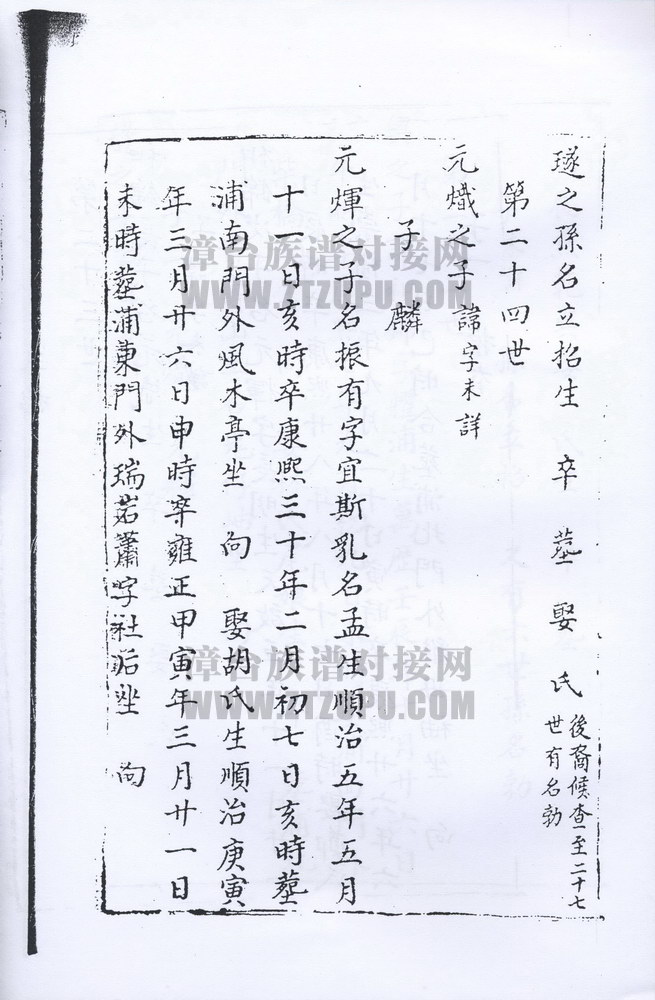 璲之孫名立招生 卒 塟 娶 氏 後裔候查至二十七
世有名勃
第二十四世
元熾之子 諱字未詳
子 麟
元煇之子名振有字宜斯乳名孟生順治五年五月
十一日亥時卒康熙三十年二月初七日亥時塟
浦南門外風木亭坐 向 娶胡氏生順治庚寅
年三月廿六日申時卒雍正甲寅年三月廿一日
未時塟浦東門外瑞岩蕭字社后坐 向
漳台族谱对接网
WWW.ZTZUPU.COM
漳台族谱对接网
WWW.ZTZUPU.COM